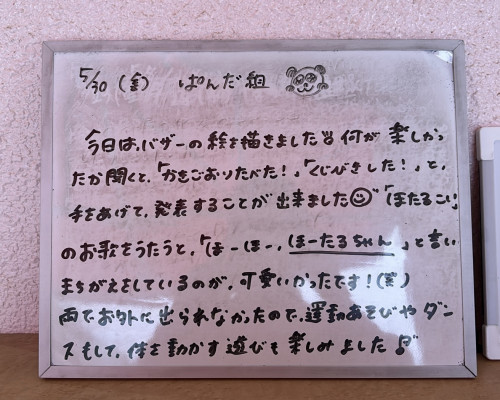 5/30 (金) ぱんだ組
今日は、バザーの絵を描きました 何が楽しかっ
たか聞くと、「かきごおりたべた!」「くじびきした!」と、
手をあげて、発表することが出来ました☺ 「ほたるこい」
のお歌をうたうと、「ほーほー、ほーたるちゃん」と言い
まちがえをしているのが、可愛いかったです!(笑)
雨でお外に出られなかったので、運動あそびやダン
スもして、体を動かす遊びも楽しみました♪